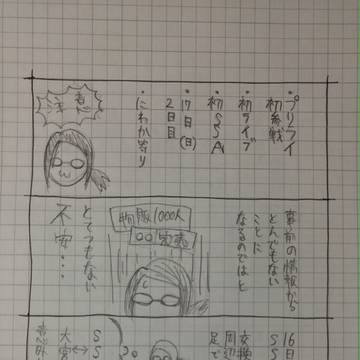 ・プリライ
初参戦
・初ライブ
・初SSA
・17日(日)
2日目
・にわか寄り
注意
事前の情報から
とんでもない
ことに
なるのではと
物販1000人
○○完売
とてつもない
不安…
16日
SS
交換
周辺
足で
SS
大宮